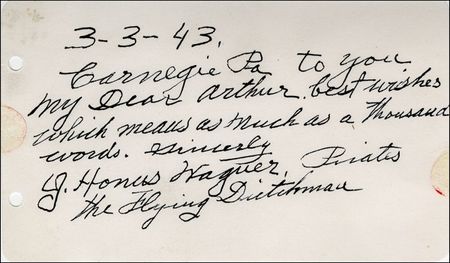 3-3-43.
Carnegie Pa to you
my Dear Arthur. best wishes
which means as much as a Thousand
words. Sincerely
J. Honus Wagner, Pirates
the Flying Dutchman